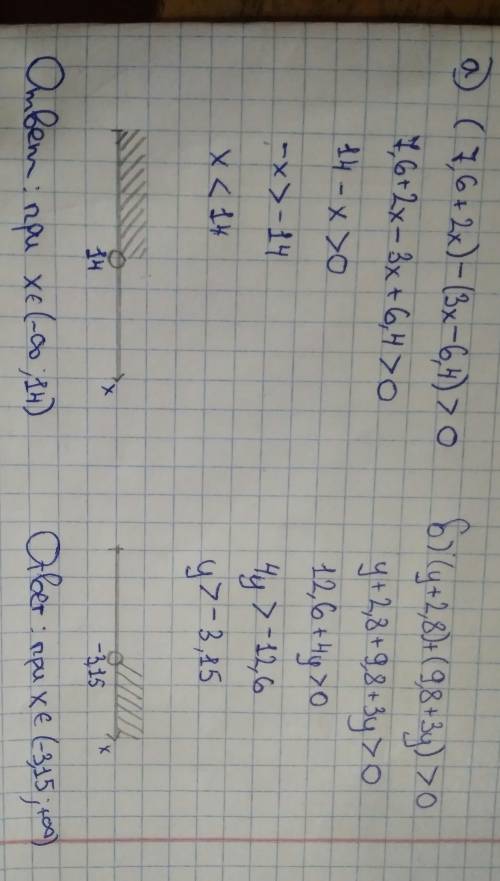 а) (7,6+2x)-(3x-6,4)>0
7,6+2x-3x+6,4>0
14-x>0
-x>-14
x<14
14
x
Ответ: при x∈(-∞;14)
б) (y+2,8)+(9,8+3y)>0
y+2,8+9,8+3y>0
12,6+4y>0
4y>-12,6
y>-3,15
-3,15
x
Ответ: при x∈(-3,15;+∞)